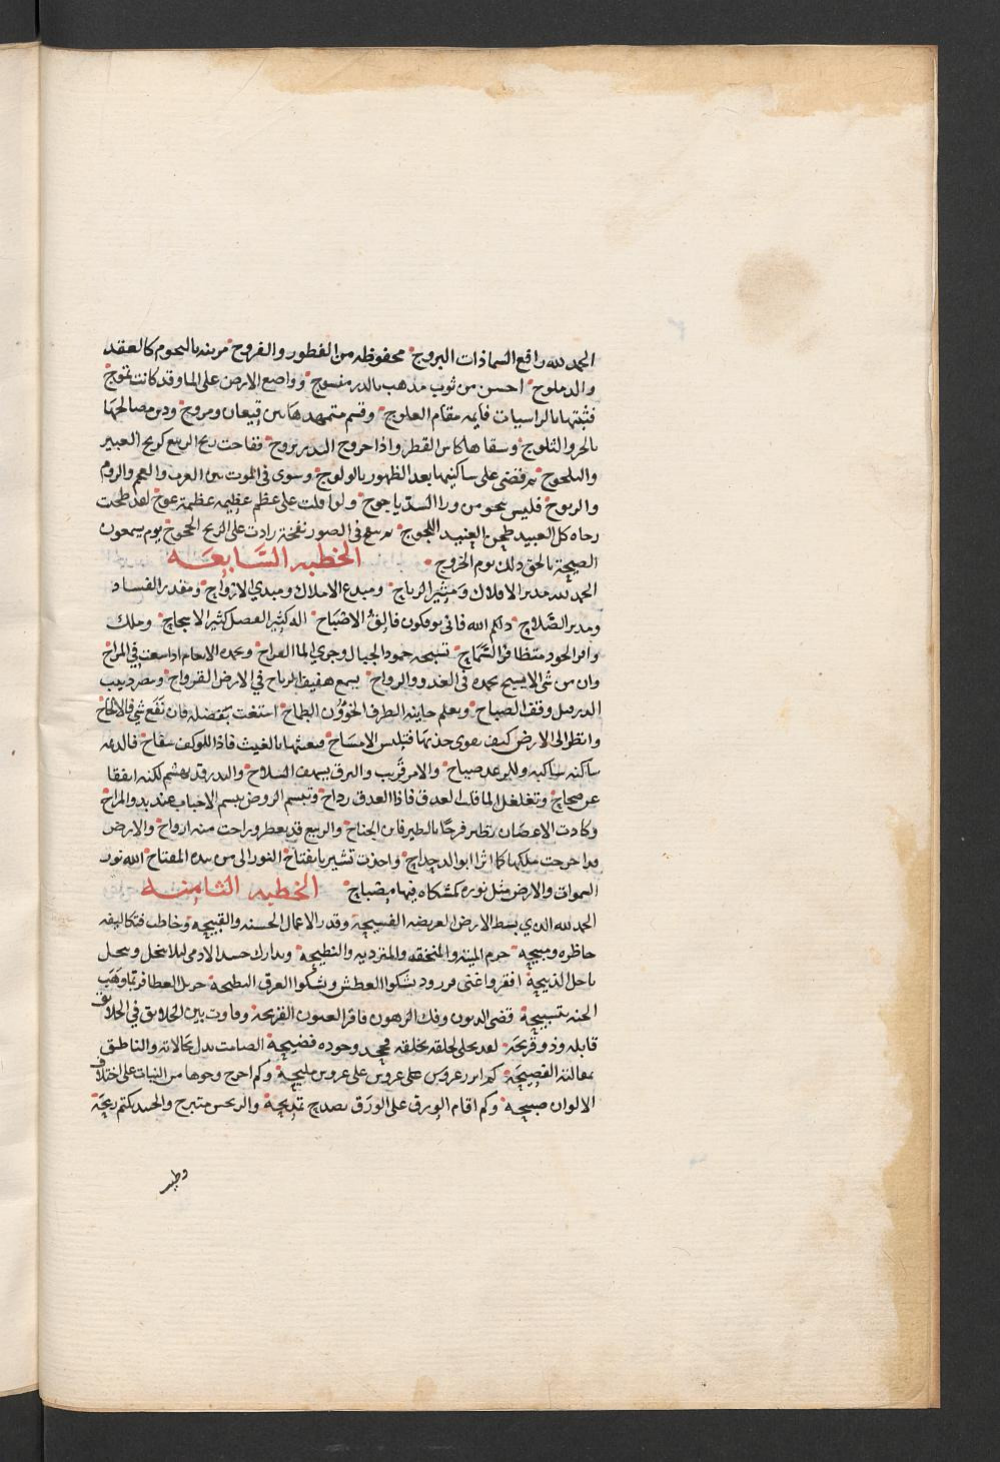 الحمد لله رافع السما ذات البروج محفوظه من الفطور والفروج مزينه بالنجوم كالعقد
والدملوج احسن من ثوب مذهب بالدر منسوج وواضع الارض على الما وقد كانت تموج
فثبتها بالراسيات قايمه مقام العلوج وقسم متمهدها بين قيعان ومروج ودبر مصالحها
بالحر والثلوج وسقاها كاس القطر واذا خروج البدر بروج ففاحت ريح الربيع كريح العبير
واليلنجوج ثم قضى على ساكنيها بعد الظهور بالولوج وسوى في الموت بين العرب والعجم والروم
والزنوج فليس ينجو من ورا السد ياجوج ولو اقلت على عظم عظيمه عظمة عوج لقد طحنت
رحاه كل العبيد طحن العنيد اللجوج ثم ينفخ في الصور نفخة زادت على الريح الخجوج يوم يسمعون
الصيحة بالحق ذلك يوم الخروج الخطبه السابعه
الحمد لله مدير الافلاك ومثير الرياح ومبدع الاملاك ومبدي الارواح ومقدر الفساد
ومدبر الصلاح ذلكم الله فانى توفكون فالق الاصباح اله كثير الفضل كثير الانجاح وملك
وافر الجود متظافر السماح تسبحه جمود الجبال وجري الما القراح وتحمده الانعام اذا سعت في المراح
وان من شي الا يسبح بحمده في الغدو والرواح يسمع هفيف الرياح في الارض القرواح ويبصر دبيب
الذر قبل وقت الصباح ويعلم خاينه الطرف الخوون الطماح استغث بفضله فان نفع شي فالالحاح
وانظر الى الارض كيف يقوى جدبها فتلبس الامساح فيغيثها بالغيث فاذا الوكف سفاح فالديمه
ساكنه ساكبه وللرعد صياح والامر قريب والبرق يسهف السلاح والبرد قد يهشم لكنه اتفقا
عن صحاح وتغلغل الما قلت الغدق فاذا الغدق رداح وتبسم الروض تبسم الاحباب عند بدو المزاح
وكادت الاغصان تطير فرحا بالطير فاين الجناح والربيع قد تعطر وراحت منه ارواح والارض
قد اخرجت ملكها كما اثرا ابو الدحداح واخذت تشير بافتتاح النور الى من بيده المفتاح الله نور
السموات والارض مثل نوره كمشكاه فيها مصباح الخطبه الثامنه
الحمد لله الذي بسط الارض العريضه الفسيحه وقدر الاعمال الحسنه والقبيحه وخاطب فتكاليفه
حاظره ومبيحه حرم الميته والمنخنقه والمترديه والنطيحه وتدارك جسد الادمي ليلا ينحل وينحل
باحل الذبيحه افقر واغنى فررود يشكوا العطش ويشكوا الغرق البطيحه جزيل العطا فربما وهب
الجنه بتسبيحه قضى الديون وفك الرهون فاقر العيون القريحه وفاوت بين الخلايق في الخلايق
قابله وذو قريحه لقد تجلى لخلقه بخلقه فجحد وجوده فضيحه الصامت يدل بحالاته والناطق
بمقالته الفصيحه كم ابرز عروس على عروس على عروس مليحه وكم اخرج وجوها من النبات على اختلاف
الالوان صبيحه وكم اقام الورق على الورق تصدح تمديحه والنرجس متبرج والخد يكتم ريحه
وطيب